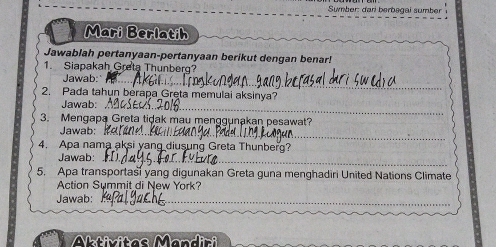 Sumber: dari berbagai sumber
Mari Berlatih
Jawablah pertanyaan-pertanyaan berikut dengan benar!
1. Siapakah Greta Thunberg?
Jawab: Aktivis lingkungan yang berasal dari Swedia
2. Pada tahun berapa Greta memulai aksinya?
Jawab: Agustus 2018
3. Mengapa Greta tidak mau menggunakan pesawat?
Jawab: Karena pada lingkungan
4. Apa nama aksi yang diusung Greta Thunberg?
Jawab: Fridays for Future
5. Apa transportasi yang digunakan Greta guna menghadiri United Nations Climate
Action Summit di New York?
Jawab: Kapal yacht
Aktivitas Mandiri